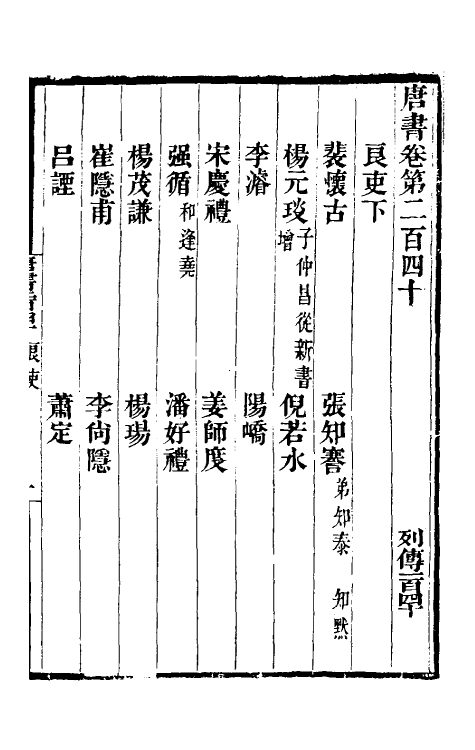 唐書卷第二百四十　列傳一百四十
良吏下
裴懷古　張知謇弟知泰　知默
楊元琰子仲昌從新書增　倪若水
李濬　陽嶠
宋慶禮　姜師度
强循和逢堯　潘好禮
楊茂謙　楊瑒
崔隱甫　李尙隱
呂諲　蕭定